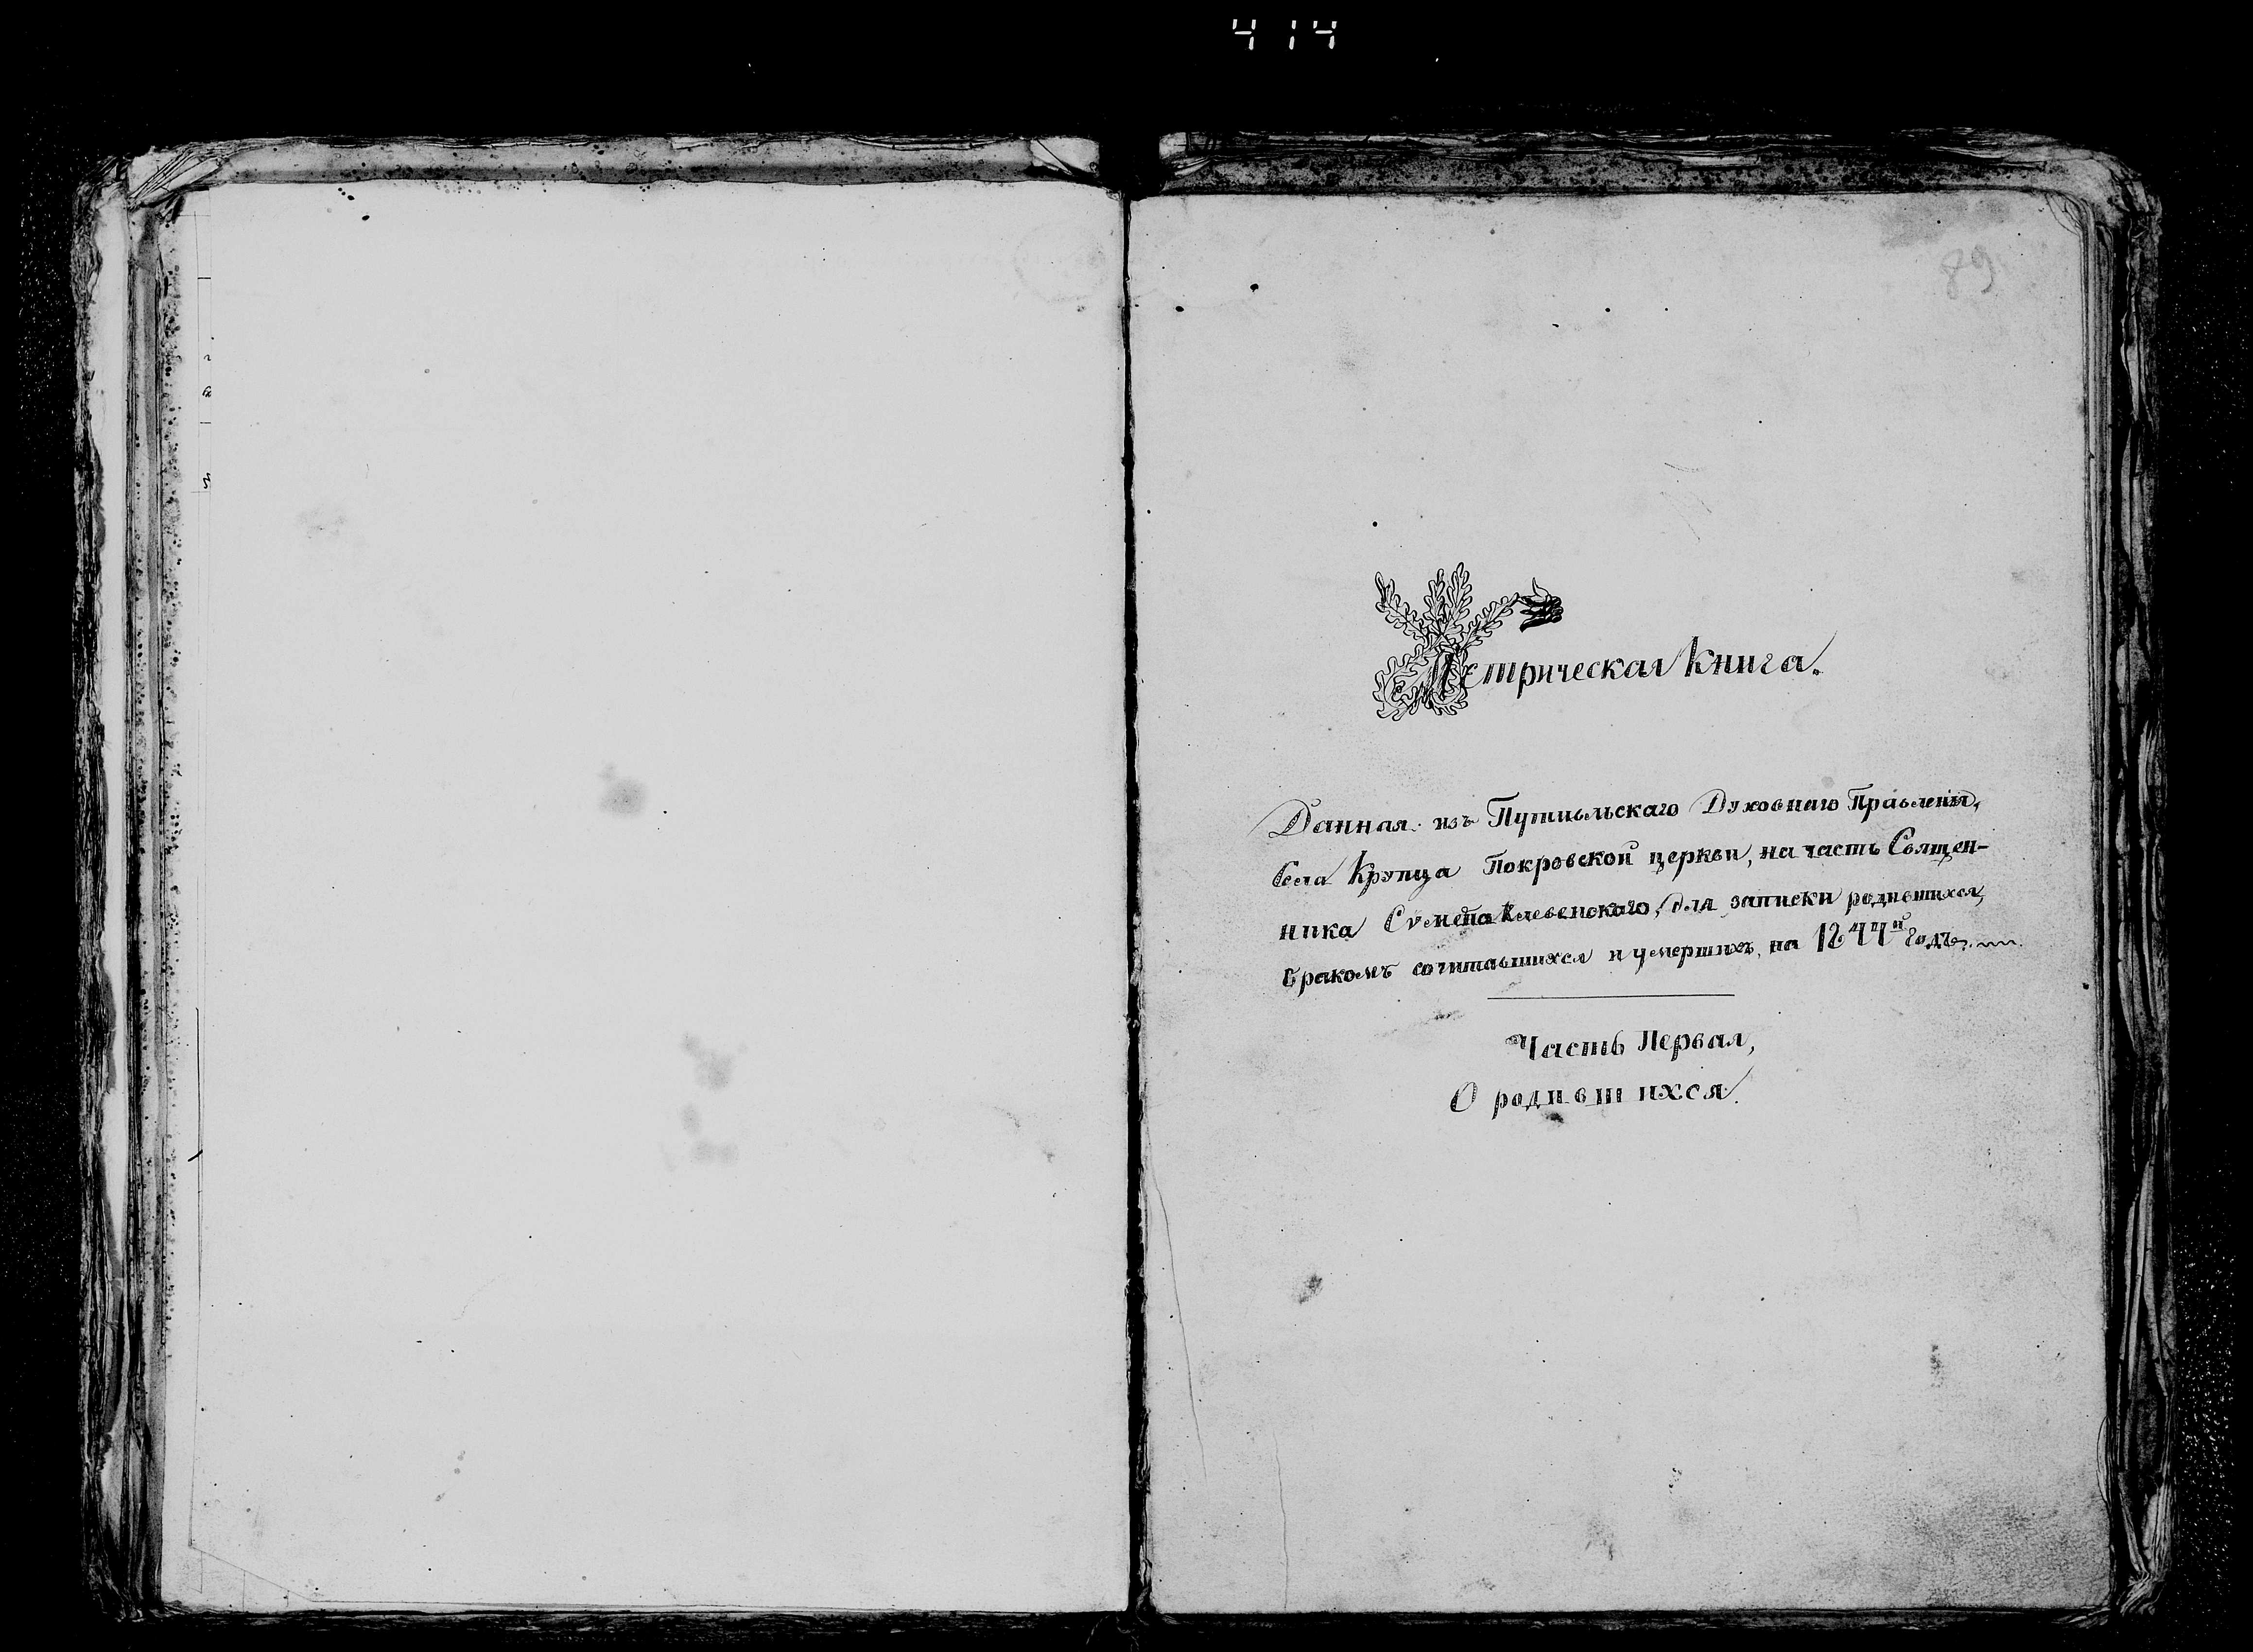 414
89
Метрическая Книга.
Данная изъ Путивльскаго Духовнаго Правленія,
Села Крупца Покровской церкви, на часть Священ-
ника Сѵмеона Клевенскаго, для записки родившихся,
бракомъ сочитавшихся и умершихъ, на 1844й годъ.
Часть Первая,
О родившихся.